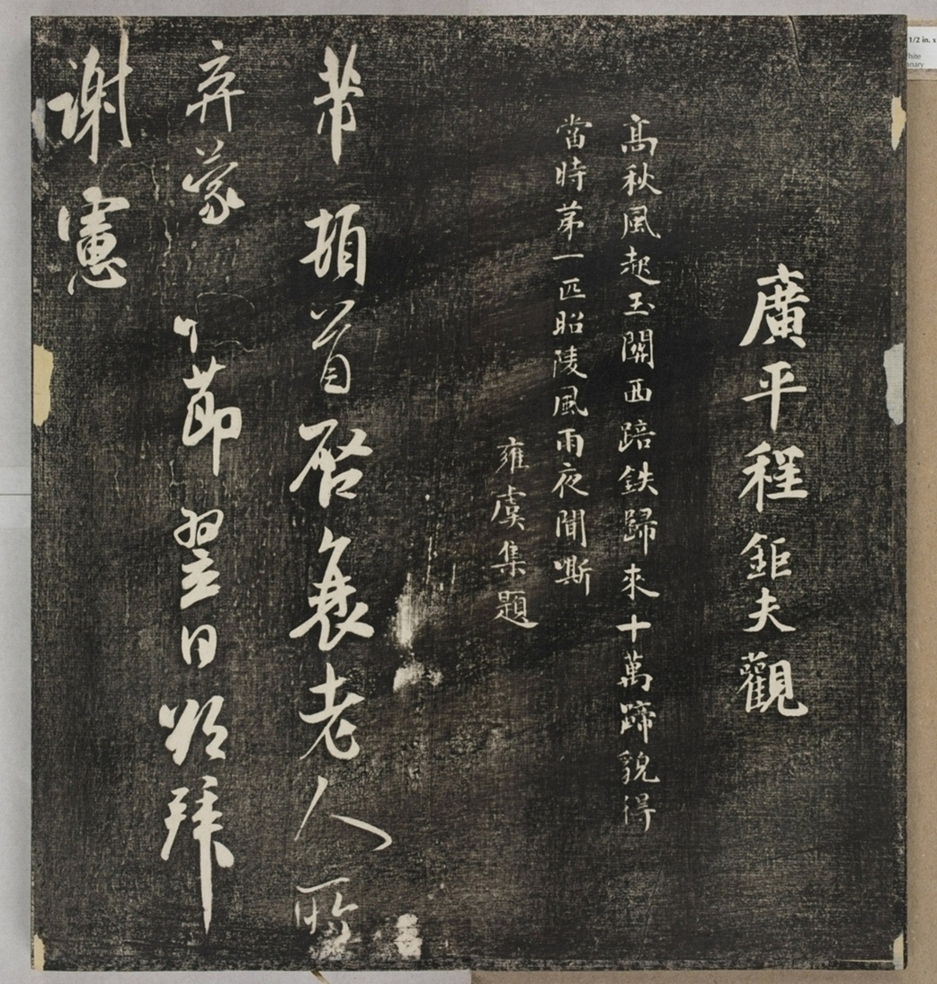 廣平程鉅夫觀
高秋風起玉關西踣鉄歸來十萬蹄貌得
當時苐一匹昭陵風雨夜聞嘶
雍虞集題
芾頓首啓衰老人所
弃蒙節翌日拜
謝憲
1/2 in. x